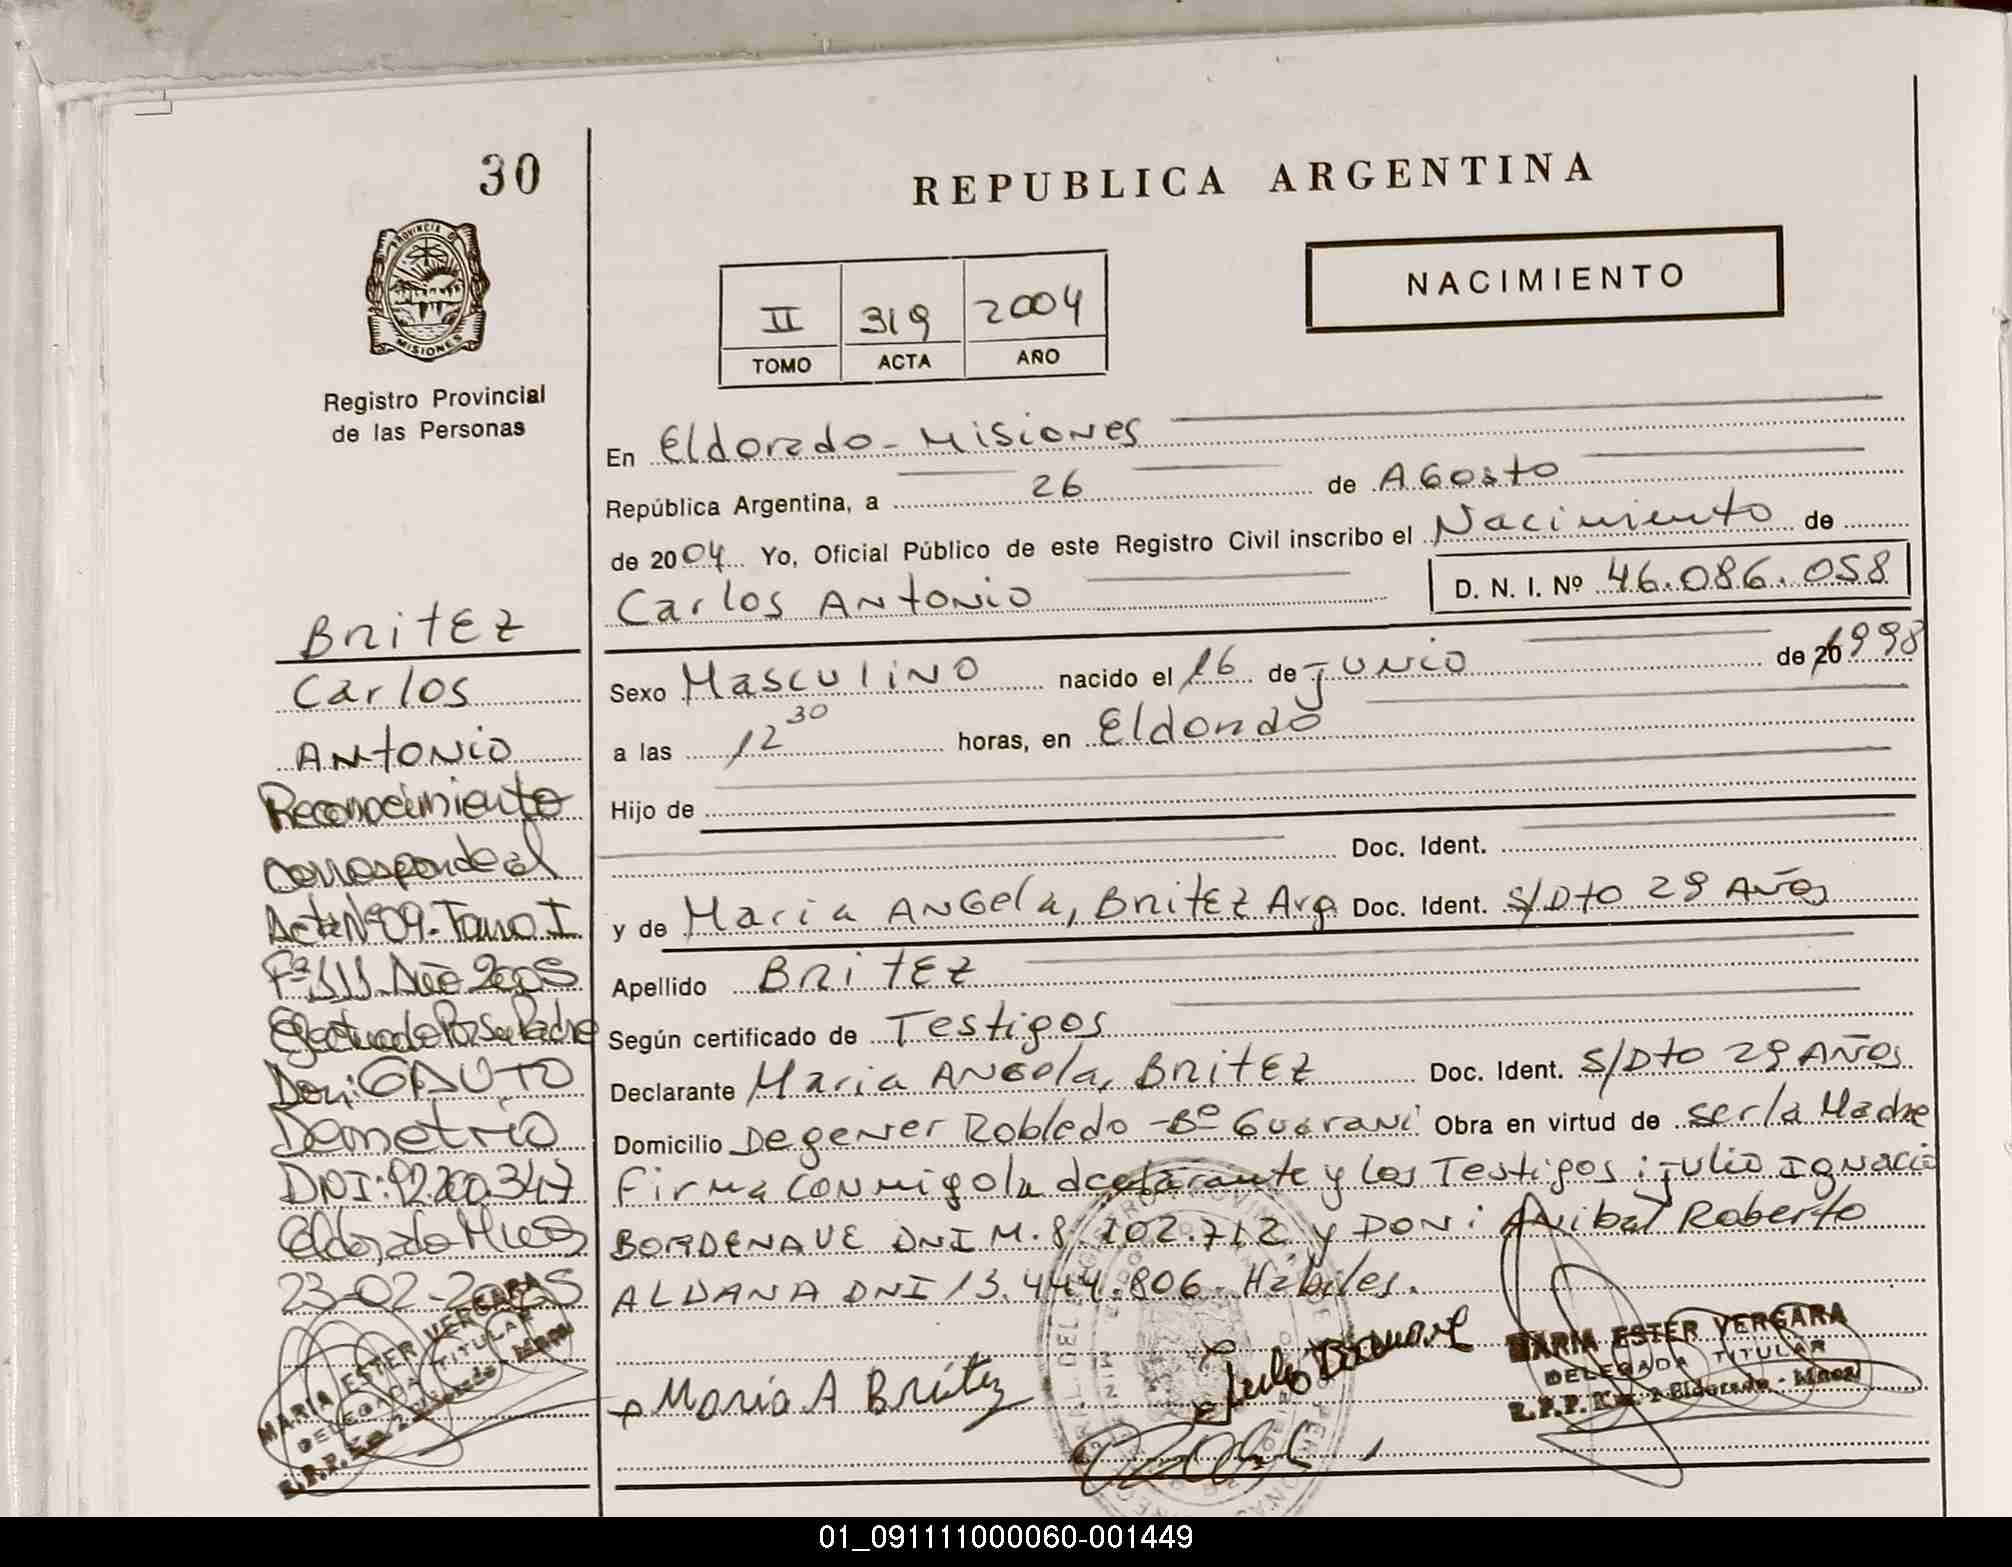 30
REPUBLICA ARGENTINA
PROVINCIA DE
MISIONES
Registro Provincial
de las Personas
NACIMIENTO
II 319 2004
TOMO ACTA AÑO
En Eldorado - Misiones
República Argentina, a 26 de AGosto
de 2004 Yo, Oficial Público de este Registro Civil inscribo el Nacimiento de
Carlos ANtoNio D. N. I. Nº 46.086.058
Sexo MasculiNO nacido el 16 de JUNio de 20 1998
a las 12 30 horas, en Eldorado
Hijo de
Doc. Ident.
y de Maria ANGela, BritEz Arg. Doc. Ident. S/Dto 29 AÑos
Apellido BritEz
Según certificado de Testigos
Declarante Maria ANGela, BRitEz Doc. Ident. S/Dto 29 AÑos
Domicilio Degener Robledo - Bº Guarani Obra en virtud de ser la Madre
Firma conmigo la declarante y los Testigos: Julio Ignacio
BORDENAVE DNI M. 8.102.712 y DON: Anibal Roberto
ALDANA DNI 13.444.806 - Habiles.
Maria A Britez
MARIA ESTER VERGARA
DELEGADA TITULAR
R.P.P. Km. 2 Eldorado - Mnes.
BritEz
Carlos
ANtoNio
Reconocimiento
corresponde al
Acta Nº 09 - Tomo I
Fº 111 Año 2005
Efectuado Por Su Padre
Don: GAUTO
Demetrio
DNI: 92.200.347
Eldorado Mnes
23-02-2005
MARIA ESTER VERGARA
DELEGADA TITULAR
R.P.P. Km. 2 Eldorado - Mnes.
01_091111000060-001449